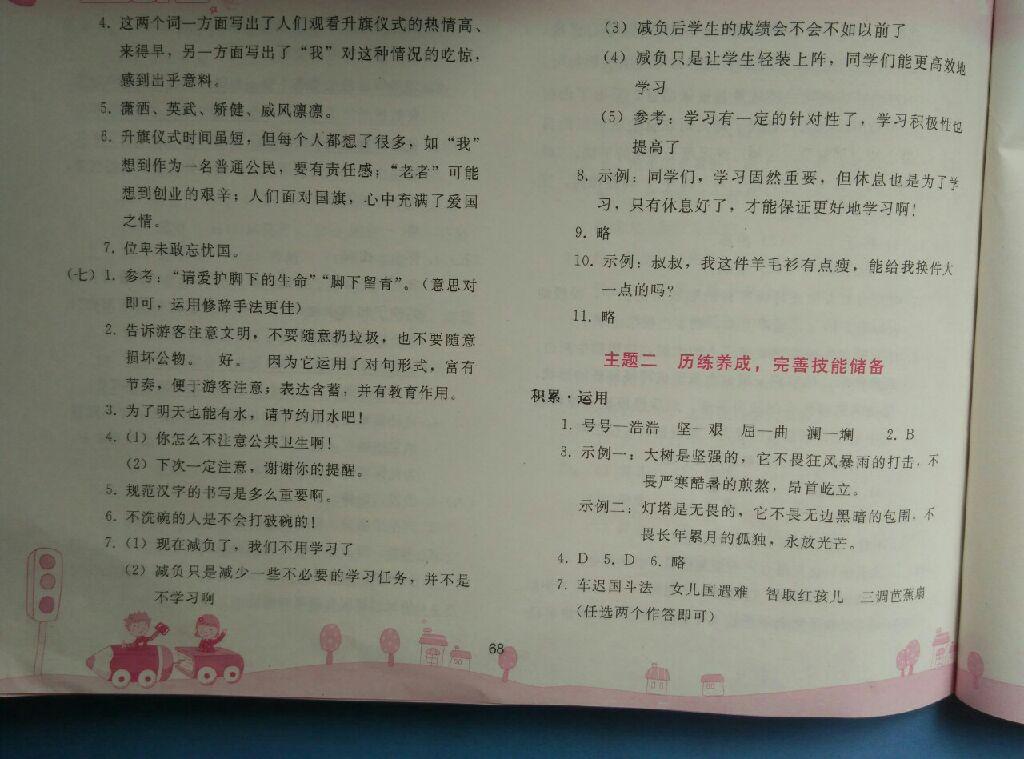 4. 这两个词一方面写出了人们观看升旗仪式的热情高、
来得早，另一方面写出了“我”对这种情况的吃惊，
感到出乎意料。
5. 潇洒、英武、矫健、威风凛凛。
6. 升旗仪式时间虽短，但每个人都想了很多，如“我”
想到作为一名普通公民，要有责任感；“老者”可能
想到创业的艰辛；人们面对国旗，心中充满了爱国
之情。
7. 位卑未敢忘忧国。
（七）1. 参考：“请爱护脚下的生命”“脚下留青”。（意思对
即可，运用修辞手法更佳）
2. 告诉游客注意文明，不要随意扔垃圾，也不要随意
损坏公物。 好。 因为它运用了对句形式，富有
节奏，便于游客注意；表达含蓄，并有教育作用。
3. 为了明天也能有水，请节约用水吧！
4.（1）你怎么不注意公共卫生啊！
（2）下次一定注意，谢谢你的提醒。
5. 规范汉字的书写是多么重要啊。
6. 不洗碗的人是不会打破碗的！
7.（1）现在减负了，我们不用学习了
（2）减负只是减少一些不必要的学习任务，并不是
不学习啊
（3）减负后学生的成绩会不会不如以前了
（4）减负只是让学生轻装上阵，同学们能更高效地
学习
（5）参考：学习有一定的针对性了，学习积极性也
提高了
8. 示例：同学们，学习固然重要，但休息也是为了学
习，只有休息好了，才能保证更好地学习啊！
9. 略
10. 示例：叔叔，我这件羊毛衫有点瘦，能给我换件大
一点的吗？
11. 略
主题二 历练养成，完善技能储备
积累·运用
1. 号号—浩浩 坚—艰 屈—曲 澜—斓 2. B
3. 示例一：大树是坚强的，它不畏狂风暴雨的打击，不
畏严寒酷暑的煎熬，昂首屹立。
示例二：灯塔是无畏的，它不畏无边黑暗的包围，不
畏长年累月的孤独，永放光芒。
4. D 5. D 6. 略
7. 车迟国斗法 女儿国遇难 智取红孩儿 三调芭蕉扇
（任选两个作答即可）
68